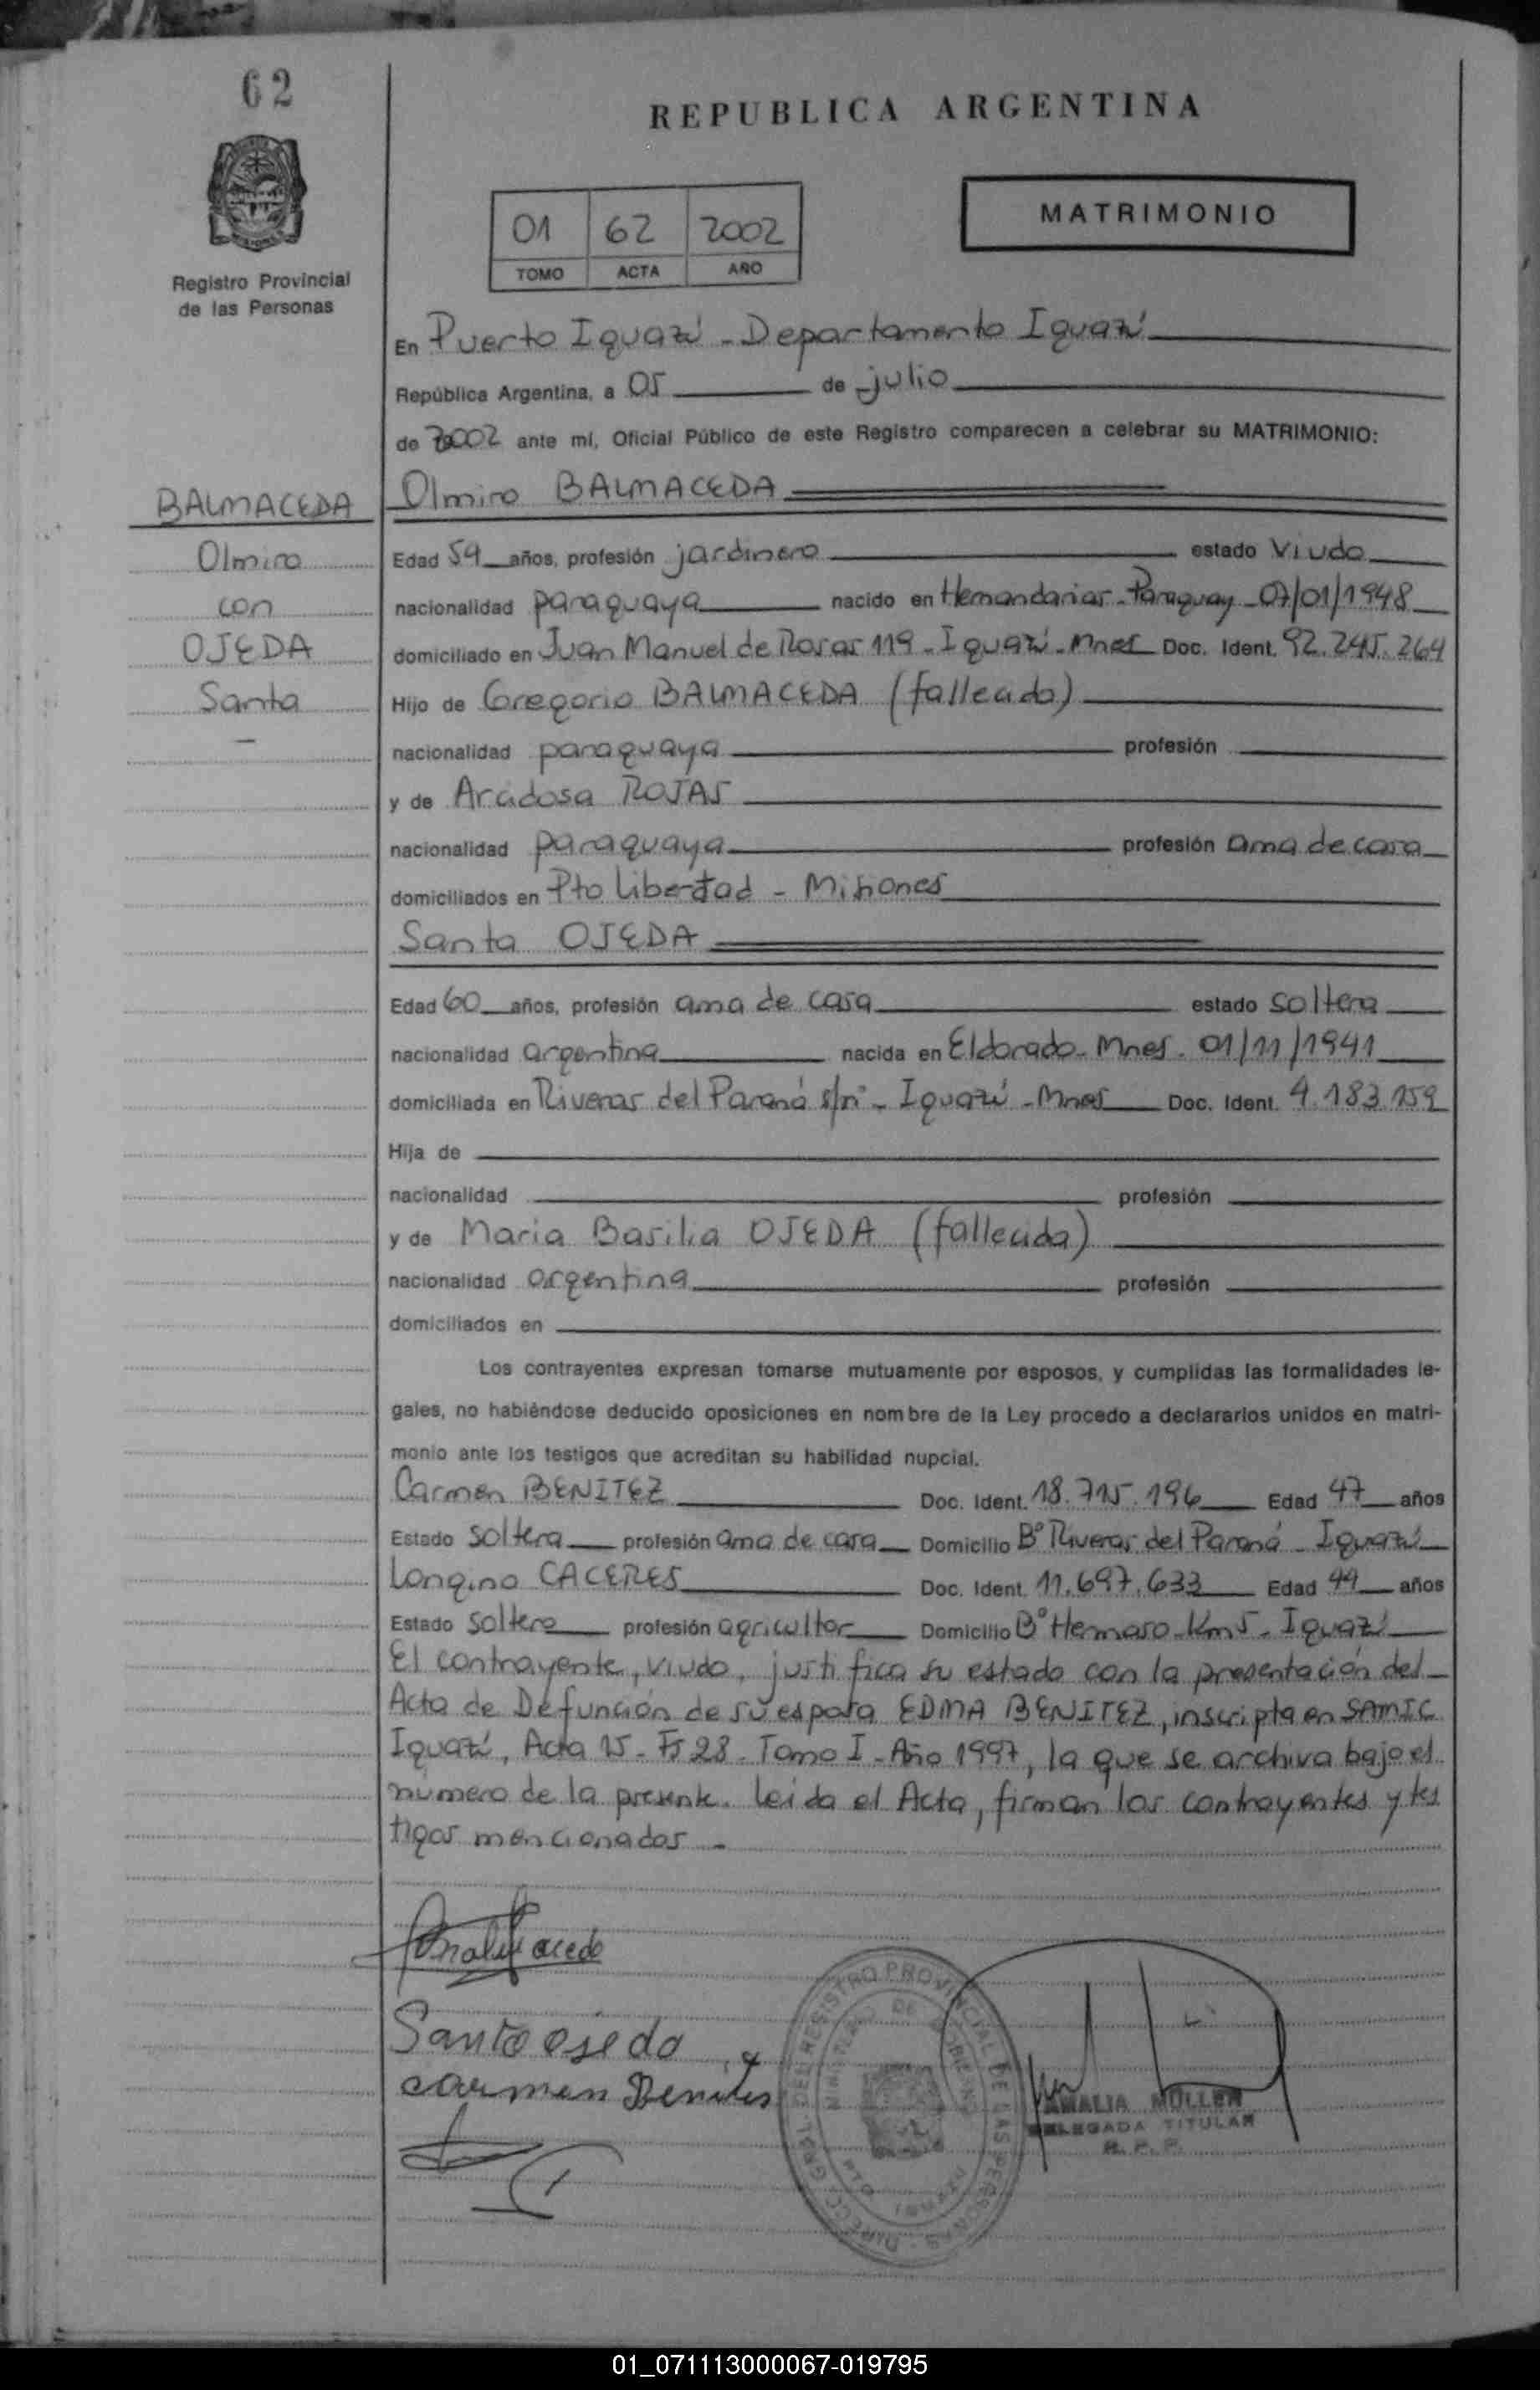 62
REPUBLICA ARGENTINA
MATRIMONIO
01 62 2002
TOMO ACTA AÑO
Registro Provincial
de las Personas
En Puerto Iguazú - Departamento Iguazú
República Argentina, a 05 de julio
de 2002 ante mí, Oficial Público de este Registro comparecen a celebrar su MATRIMONIO:
BALMACEDA
Olmiro
con
OJEDA
Santa
Olmiro BALMACEDA
Edad 59 años, profesión jardinero estado viudo
nacionalidad paraguaya nacido en Hernandarias - Paraguay - 07/01/1948
domiciliado en Juan Manuel de Rosas 119 - Iguazú - Mnes Doc. Ident. 92.245.264
Hijo de Gregorio BALMACEDA (fallecido)
nacionalidad paraguaya profesión
y de Aradosa ROJAS
nacionalidad paraguaya profesión ama de casa
domiciliados en Pto Libertad - Misiones
Santa OJEDA
Edad 60 años, profesión ama de casa estado soltera
nacionalidad argentina nacida en Eldorado - Mnes. 01/11/1941
domiciliada en Riveras del Paraná s/nº - Iguazú - Mnes Doc. Ident. 4.183.159
Hija de
nacionalidad profesión
y de Maria Basilia OJEDA (fallecida)
nacionalidad argentina profesión
domiciliados en
Los contrayentes expresan tomarse mutuamente por esposos, y cumplidas las formalidades le-
gales, no habiéndose deducido oposiciones en nombre de la Ley procedo a declararlos unidos en matri-
monio ante los testigos que acreditan su habilidad nupcial.
Carmen BENITEZ Doc. Ident. 18.715.196 Edad 47 años
Estado soltera profesión ama de casa Domicilio Bº Riveras del Paraná - Iguazú
Longino CACERES Doc. Ident. 11.697.633 Edad 44 años
Estado soltero profesión agricultor Domicilio Bº Hermoso - Km 5 - Iguazú
El contrayente, viudo, justifica su estado con la presentación del
Acta de Defunción de su esposa EDMA BENITEZ, inscripta en SAMIC
Iguazú, Acta 15 - Fº 28 - Tomo I - Año 1997, la que se archiva bajo el
número de la presente. Leida el Acta, firman los contrayentes y tes
tigos mencionados -
Santa ojeda
carmen Benites
DIRECC. GRAL. DEL REGISTRO PROVINCIAL DE LAS PERSONAS
MINISTERIO DE GOBIERNO
PTO IGUAZU
AMALIA MULLER
DELEGADA TITULAR
R. P. P.
01_071113000067-019795